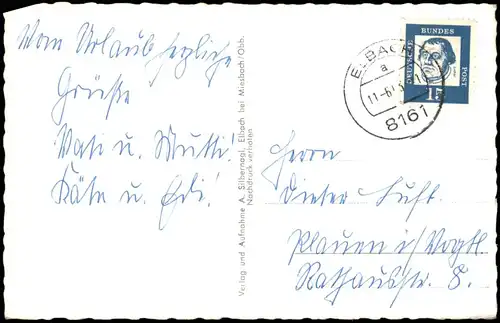 Vom Urlaub herzliche
Grüße
Vati u. Mutti!
Käte u. Edi!
Verlag und Aufnahme A. Silbernagl, Elbach bei Miesbach/Obb.
Nachdruck verboten
ELBACH
a
11.-6.
8161
DEUTSCHE
BUNDES
POST
15
Herrn
Dieter Luft.
Plauen i/Vogtl.
Rathausstr. 8.